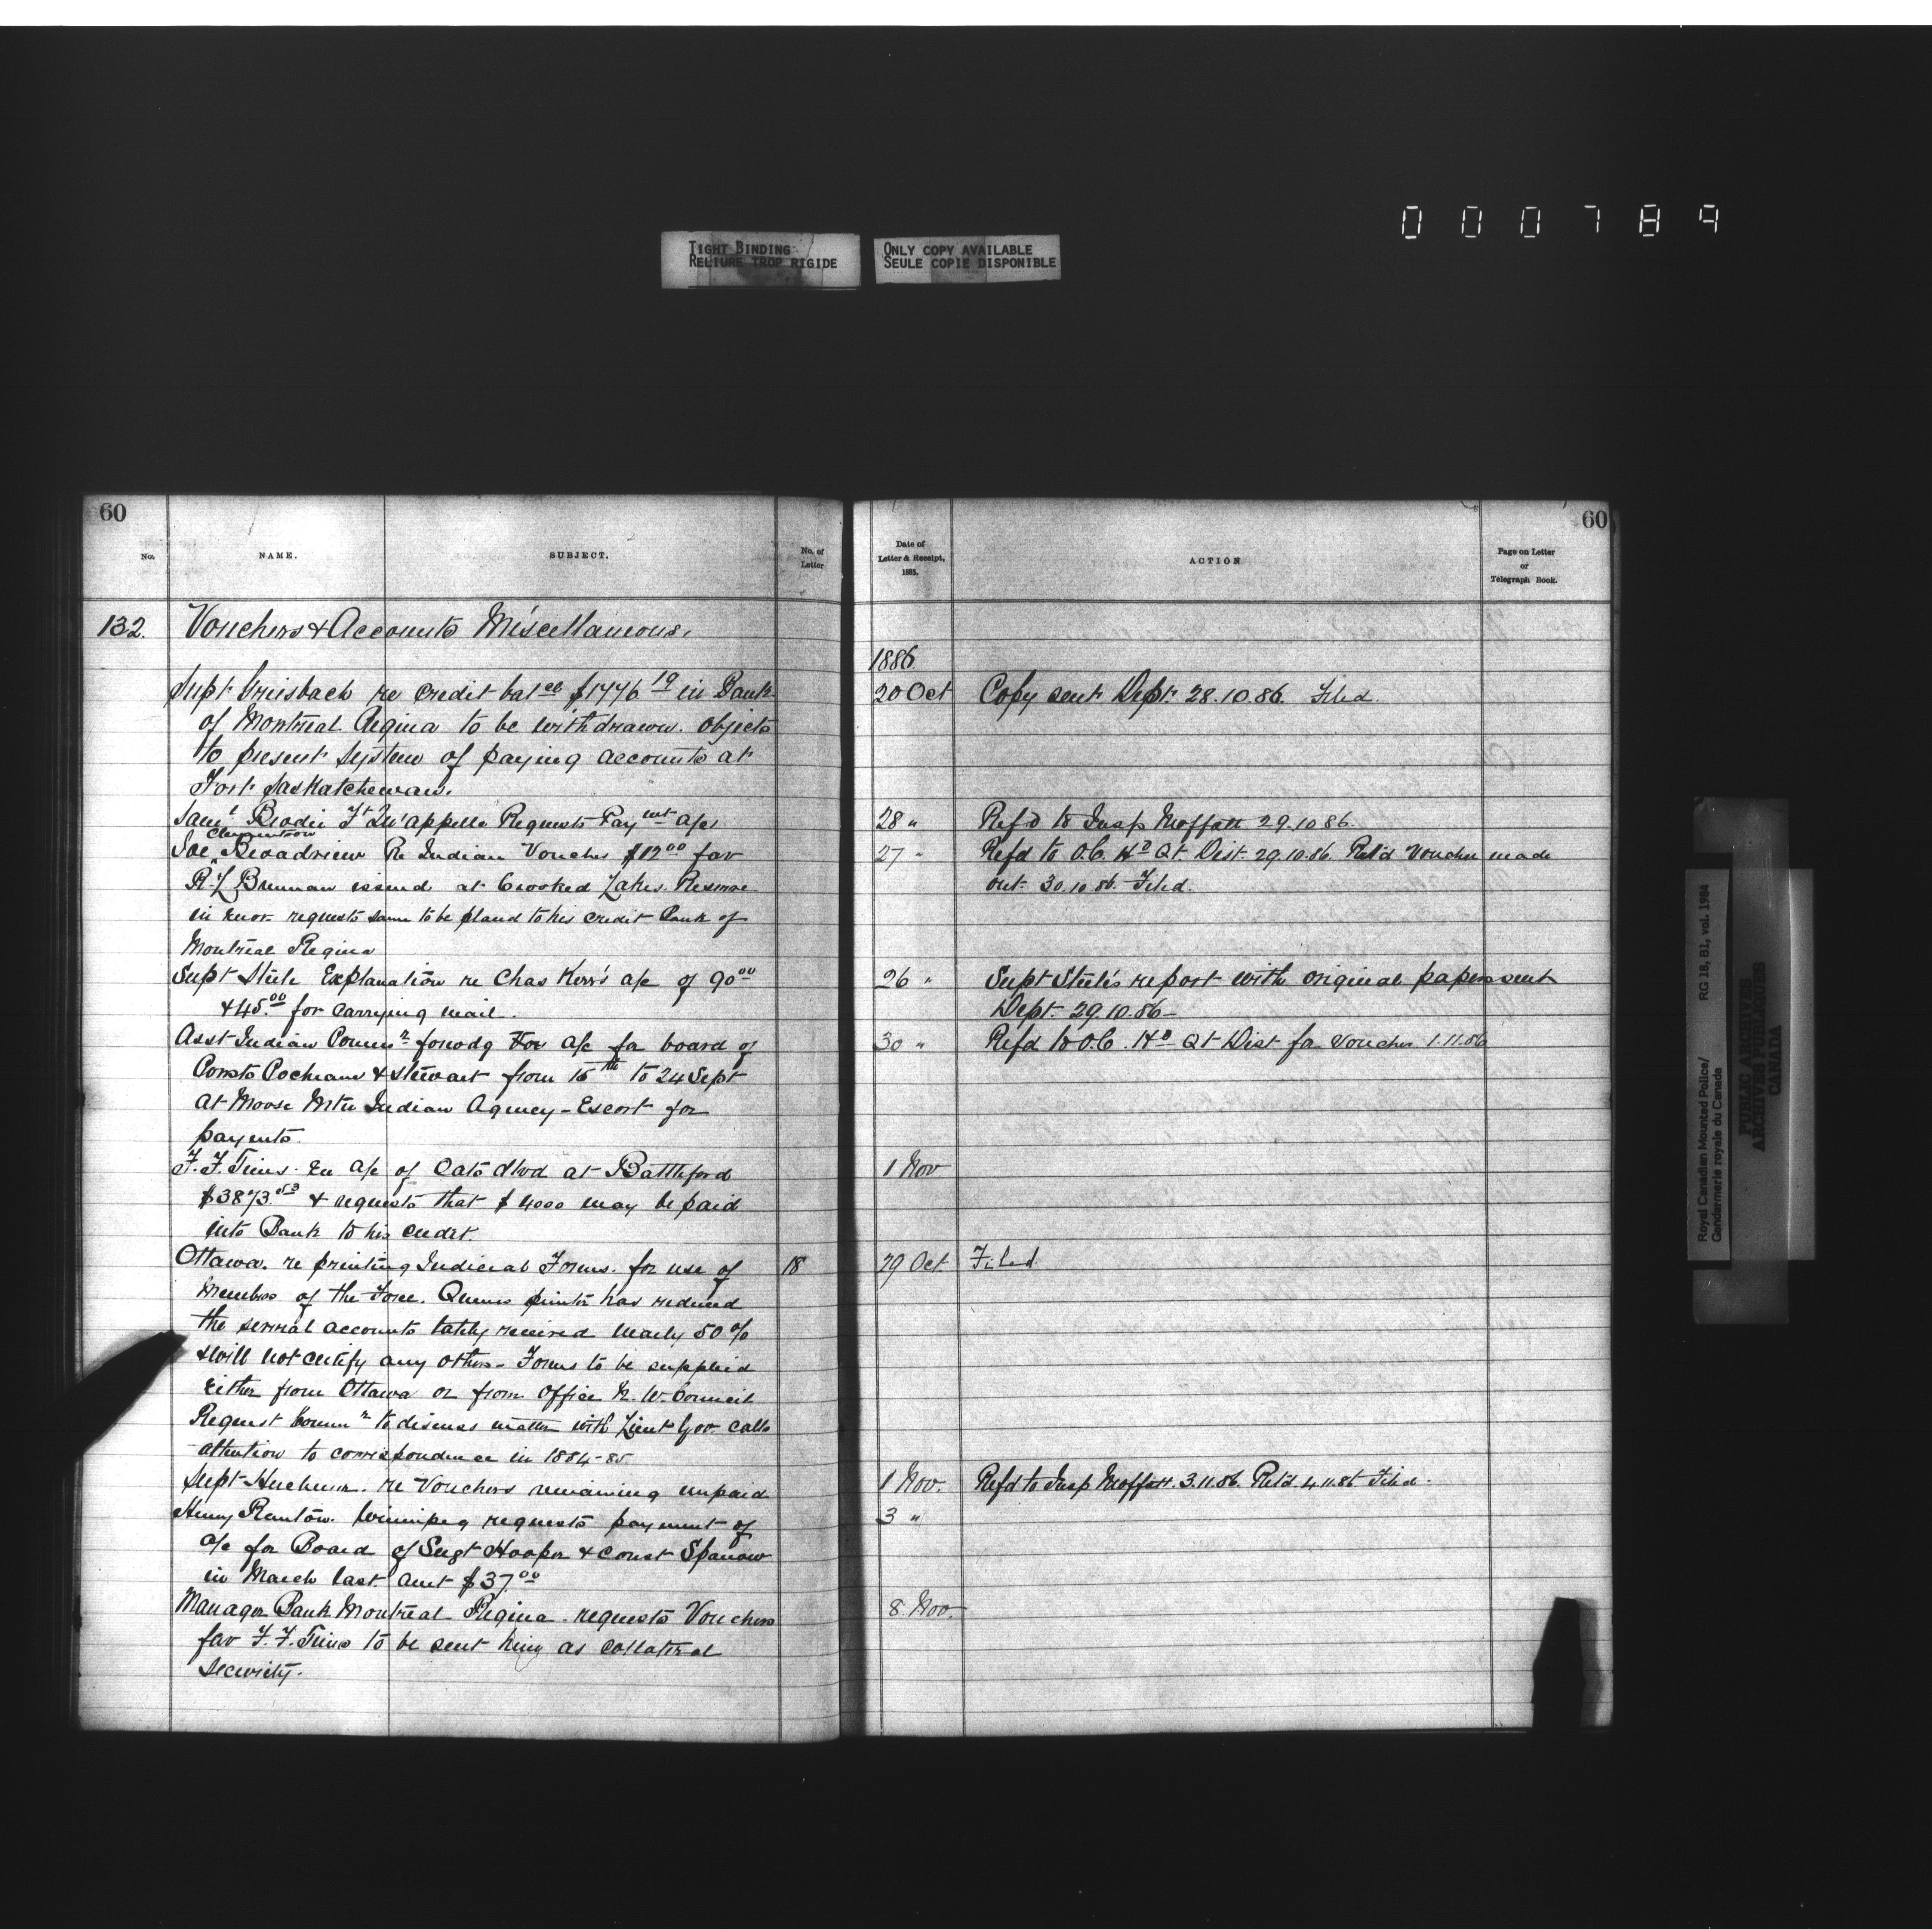 000789
TIGHT BINDING
RELIURE TROP RIGIDE
ONLY COPY AVAILABLE
SEULE COPIE DISPONIBLE
60
No.
NAME.
SUBJECT.
No. of
Letter
132. Vouchers & Accounts Miscellaneous.
Supt Griesbach re credit balce $1446 19 in Bank
of Montreal Regina to be withdrawn. Objects
to present system of paying accounts at
Fort Saskatchewan.
Saml Brodie Ft Qu'appelle Requests Paymt a/c
Clementson
Joe Broadview Re Indian Voucher $12 00 fav
R L Brennan issued at Crooked Lakes Reserve
in error requests same to be placed to his credit Bank of
Montreal Regina
Supt Steele Explanation re Chas Kerr's a/c of 90 00
& 45.00 for carrying mail.
Asst Indian Commr forwdg a/c for board of
Consts Cochrane & Stewart from 15th to 24 Sept
at Moose Mtn Indian Agency - Escort for
payents.
F. F. Tims. En a/c of Oats dlvd at Battleford
$3873.53 & requests that $4000 may be paid
into Bank to his credit.
Ottawa. re printing Judicial Forms. for use of 18
Members of the Force. Queens printer has reduced
the several accounts lately received nearly 50 %
& will not certify any others - Forms to be supplied
either from Ottawa or from Office N. W. Council
Request Commr to discuss matter with Lieut Gov. calls
attention to correspondence in 1884-85
Supt re Vouchers remaining unpaid
Henry Winnipeg requests payment of
a/c for Board of Sergt Hooper & Const Sparrow
in March last Amt $37.00
Manager Bank Montreal Regina. requests Vouchers
fav F. F. Tims to be sent him as collateral
security.
60
Date of
Letter & Receipt,
1885.
ACTION
Page on Letter
or
Telegraph Book.
1886.
20 Oct Copy sent Dept. 28.10.86. Filed.
28 " Refd to Insp Moffatt 29.10 86.
27 " Refd to O.C. Hd Qt. Dist. 29.10.86. Ret'd Voucher made
out. 30.10.86. Filed.
26 " Supt Steele's report with original papers sent
Dept. 29.10.86 -
30 " Refd to O.C. Hd Qt Dist for Voucher 1.11.86
1 Nov
29 Oct Filed
1 Nov. Refd to Insp Moffatt. 3.11.86. Retd. 4.11.86. Filed.
3 "
8. Nov.
Royal Canadian Mounted Police/
Gendarmerie royale du Canada
RG 18, B1, vol. 1984
PUBLIC ARCHIVES
ARCHIVES PUBLIQUES
CANADA